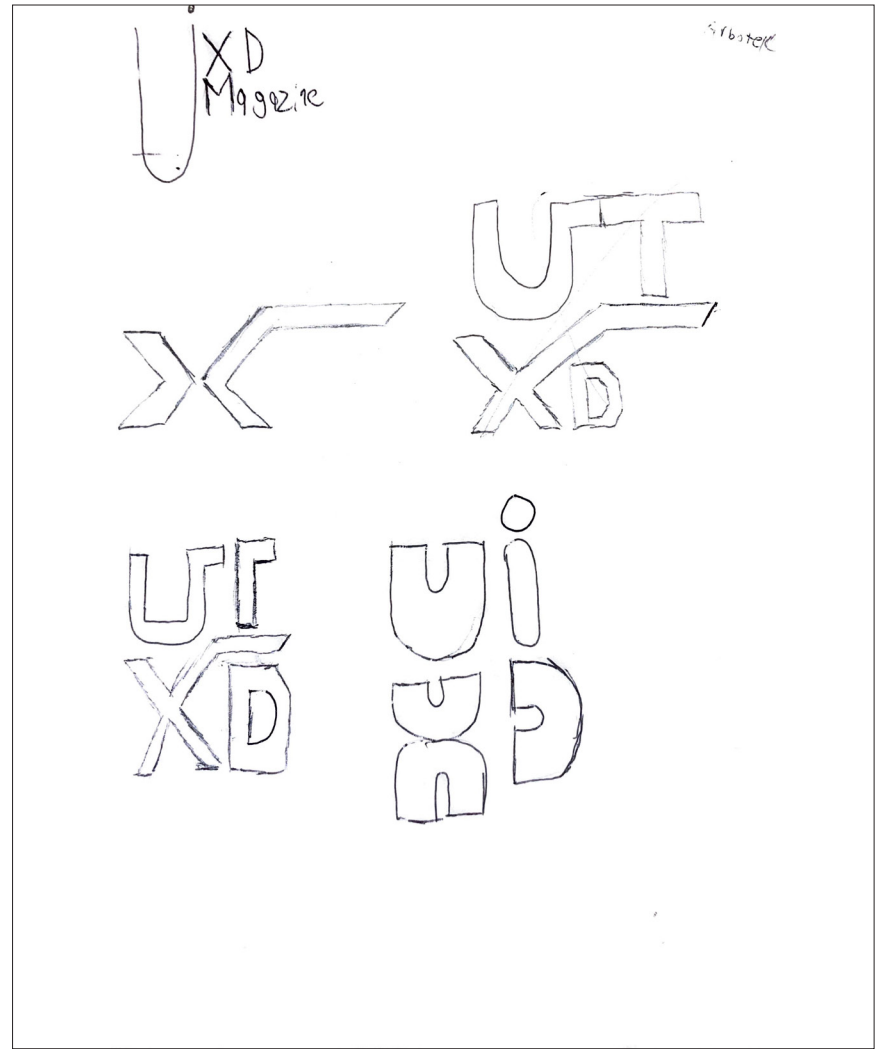 UXD
Magazine
X
UT
XD
UT
XD
Ui
XD